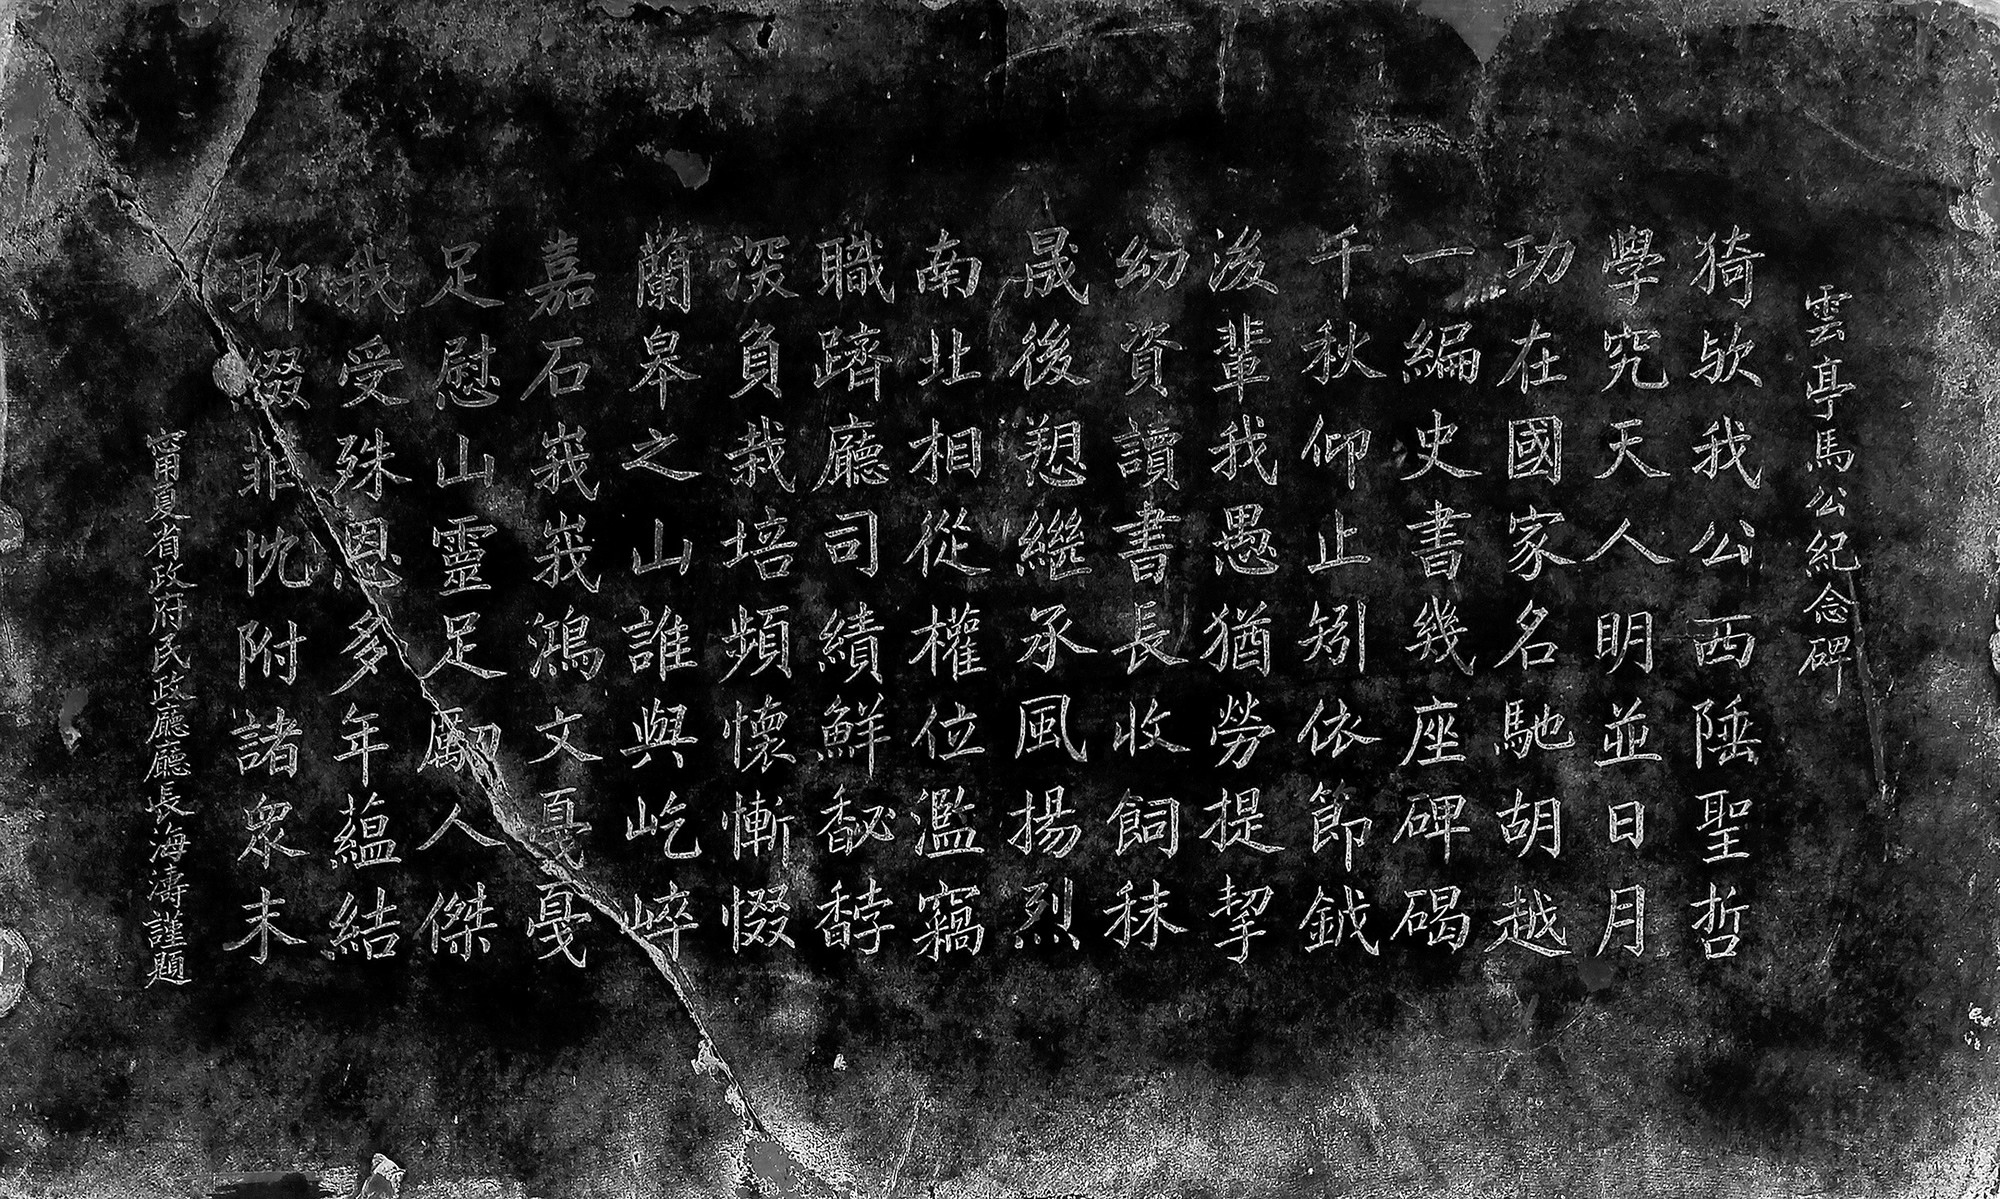 雲亭馬公紀念碑
猗欤我公西陲聖哲
學究天人明並日月
功在國家名馳胡越
一編史書幾座碑碣
千秋仰止矧依節鉞
後輩我愚猶勞提挈
幼資讀書長收飼秣
晟後愬繼承風揚烈
南北相從權位濫竊
職躋廳司績鮮馝馞
深負栽培頻懷慚惙
蘭皋之山誰與屹崒
嘉石峩峩鴻文戛戛
足慰山靈足勵人傑
我受殊恩多年蘊結
聊綴菲忱附諸衆末
甯夏省政府民政廳廳長海濤謹題